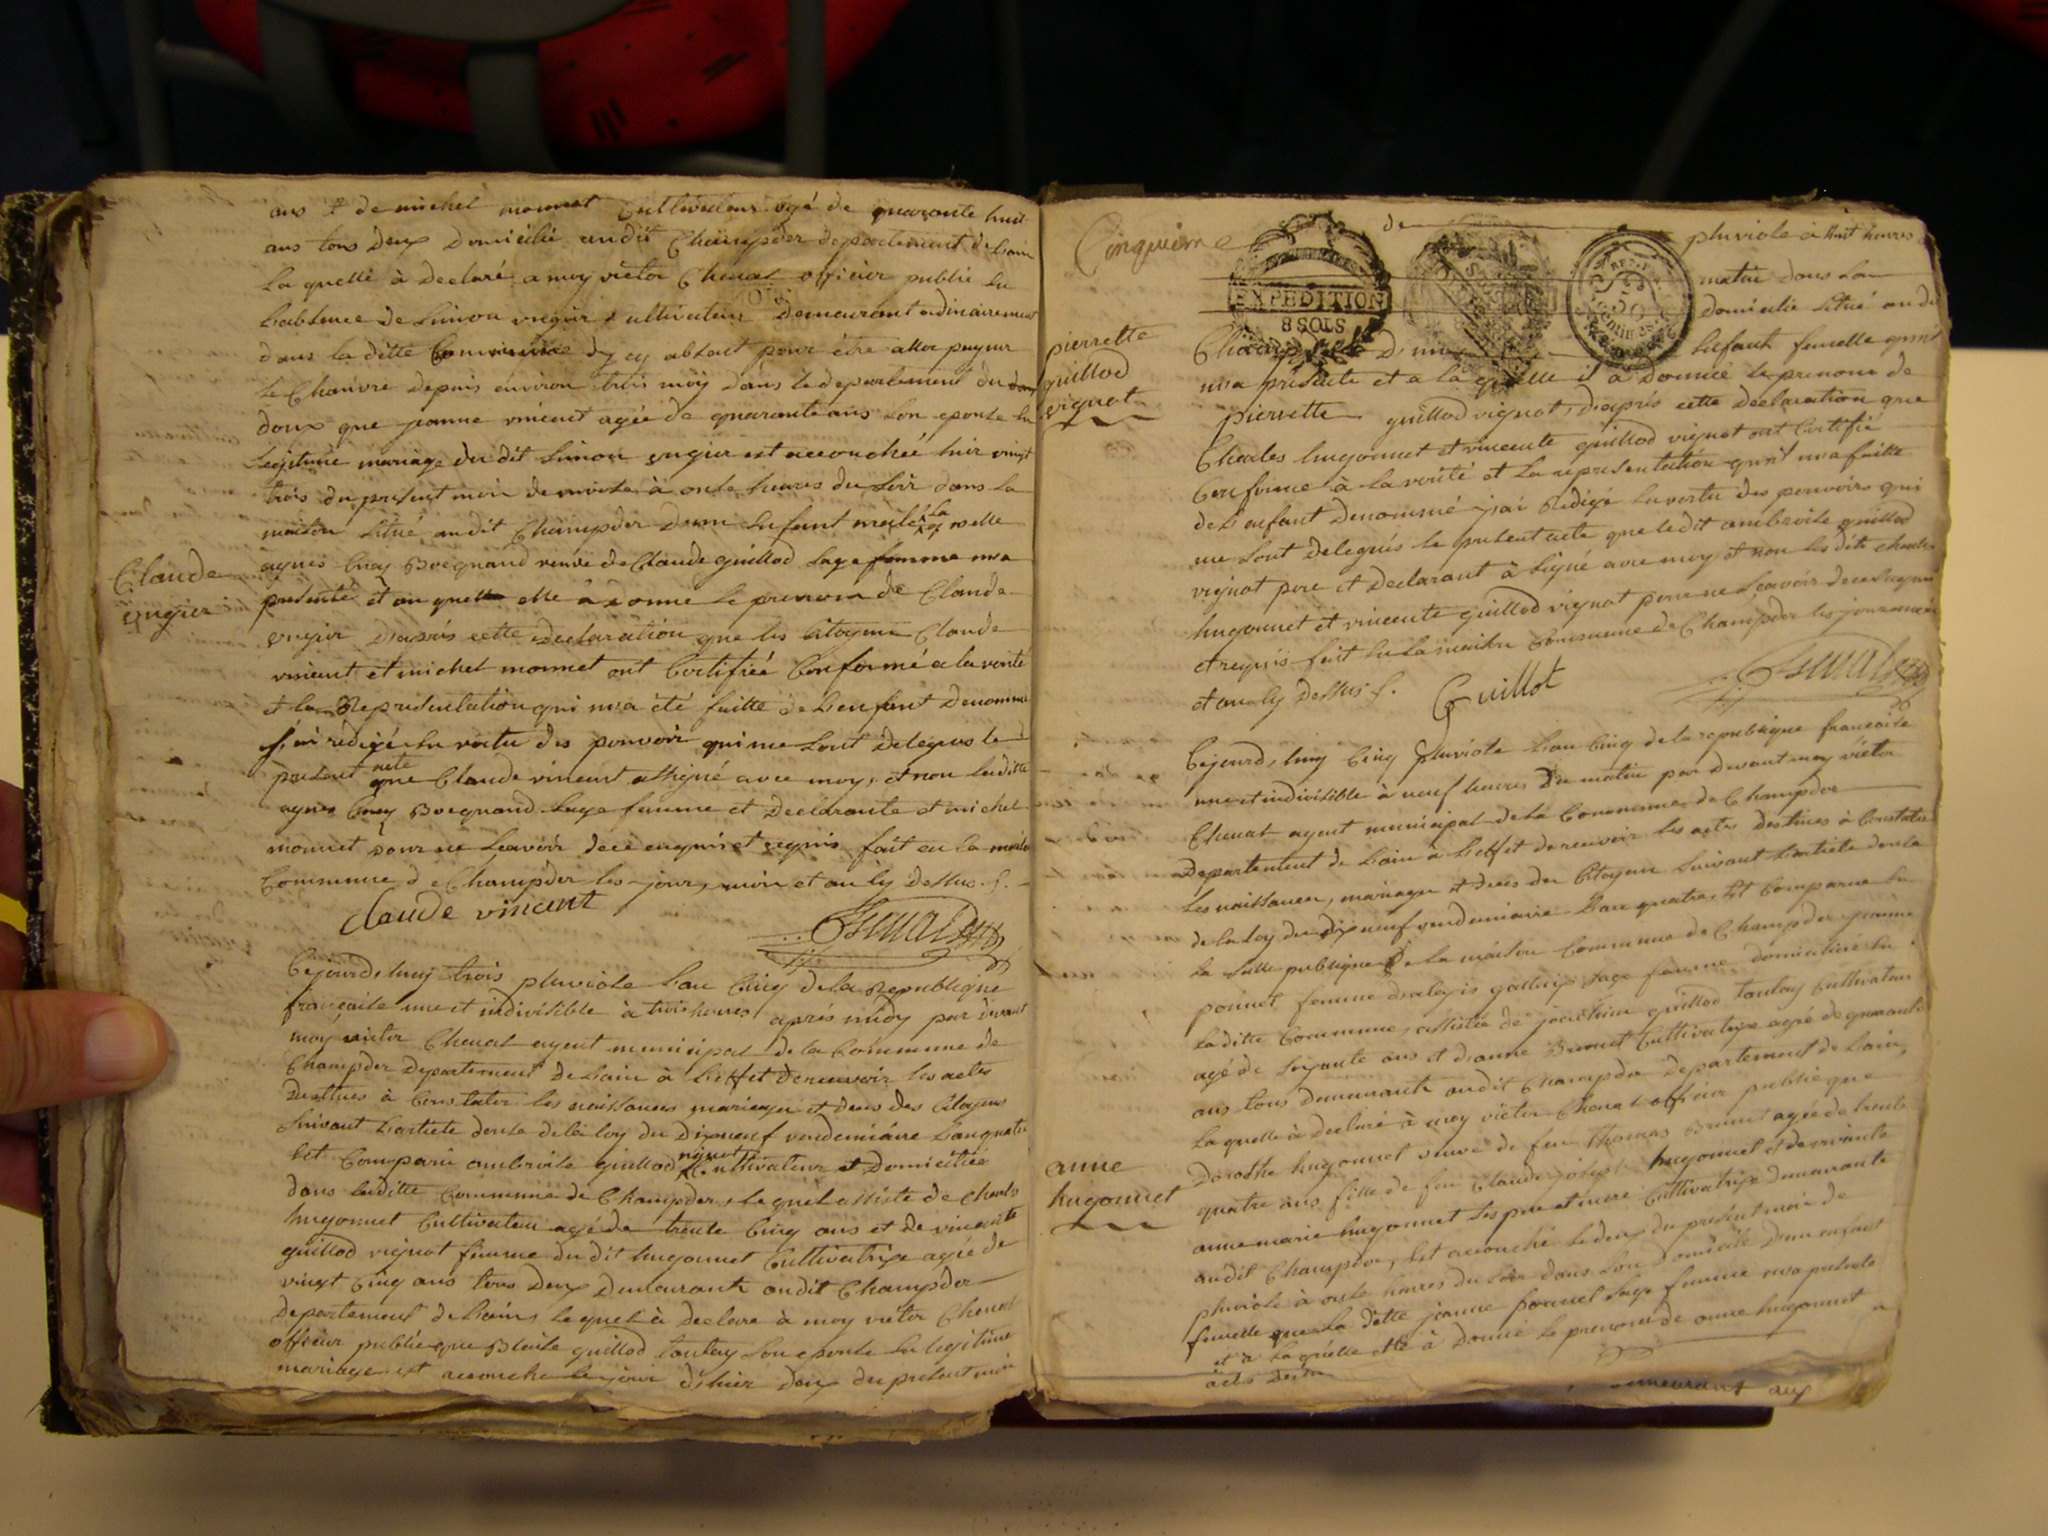 ans & de michel monnet Cultivateur agé de quarante huit
ans tous deux Domicilié audit Champdor departement de Lain
la quelle à declaré a moy victor Chenal officier public en
Labsence de Simon Cultivateur Demeurant ordinairement
dans la ditte Commune dy cy absent pour être aller peigner
le Chanvre depuis environ trois moy dans le departement du
doux que jeanne vincent agée de quarante ans son epouse en
Legitime mariage du dit Simon est accouchée hier vingt
trois du present moi de nivose à onse heures du soir dans la
maison situé audit Champdor Dun Enfant male la
agnes veuve de Claude guillod sage femme ma
presenté et au quelle elle à donne le prenom de Claude
Claude
D'aprés cette Declaration que les Citoyens Claude
vincent et michel monnet ont Certifiée Conformé a la verité
et la Representation qui ma été faitte de Lenfant Denommé
J'ai redigé En vertu des pouvoir qui me sont delegues le
present acte que Claude vincent a signé avec moy, et non laditte
agnes sage femme et Declarante et michel
monnet pour ne scavoir de ce enquis et requis fait en la maison
Commune de Champdor les jour, moi et an cy dessus. /.
Claude vincent
Cejourd huy trois pluviose Lan Cinq de la Republique
francaise une et indivisible à trois heures aprés midy par devant
moy victor Chenal agent municipal de la Commune de
Champdor Departement de Lain à Leffet de recevoir les actes
Destines à Constater les naissances mariages et deces des Citoyens
suivant Larticle douse de la loy du Dixneuf vendemiaire Lan quatre
Est Comparu ambroise guillod vignot Cultivateur et Domicilié
dans laditte Commune de Champdor, lequel assiste de Charles
hugonnet Cultivateur agé de trente Cinq ans et de vincente
guillod vignot femme du dit hugonnet Cultivatrixe agée de
vingt Cinq ans tous Deux Demeurants audit Champdor
Departement de Lain, lequel à declare à moy victor Chenal
officier public que Blaise guillod tonlay son epouse En legitime
mariage est accouche le jour d'hier Deux du present moi
Cinquieme
de
pluviose à huit heures
EXPEDITION
8 SOLS
matin dans son
domicile situé audit
pierrette
guillod
vignot
Champdor D'une Enfant femelle quil
ma présenté et a la quelle il à donné le prenom de
pierrette guillod vignot, d'aprés cette Declaration que
Charles hugonnet et vincente guillod vignot ont Certifié
Conforme à la verité et la representation quil ma faitte
de L'enfant Denommé jai Redigé En vertu des pouvoirs qui
me sont delegués le present acte que ledit ambroise guillod
vignot pere et Declarant à signé avec moy et non les dits charles
hugonnet et vincente guillod vignot pour ne scavoir de ce Enquis
et requis fait En la maison Commune de Champdor les jour moi
et an cy dessus /. Guillot
Cejourd huy Cinq Pluviose Lan Cinq de la republique francaise
une et indivisible à neuf heures Du matin par devant moy victor
Chenal agent municipal de la Commune de Champdor
Departement de Lain à Leffet de recevoir les actes Destines à Constater
Les naissances, mariages et deces des Citoyens suivant Larticle douse
de la loy du dix neuf vendemiaire Lan quatre, Est Comparue En
la salle publique de la maison Commune de Champdor jeanne
ponnet femme dalexis sage femme domiciliée En
laditte Commune, assistée de joachim guillod tonlay Cultivateur
agé de soixante ans et d'anne Brunet Cultivatrixe agée de quarante
ans tous demeurants audit Champdor Departement de Lain,
La quelle à declaré à moy victor Chenal officier public que
Dorothe hugonnet veuve de feu Thomas Brunet agée de trente
anne
hugonnet
quatre ans fille de feu Claude joseph hugonnet et de vivante
anne marie hugonnet ses pere et mere Cultivatrixe demeurante
audit Champdor, Est accouché le deux du present moi de
pluviose à onse heures du soir dans son domicile D'un enfant
femelle que La ditte jeanne ponnet sage femme ma presenté
et à laquelle elle à donné le prenom de anne hugonnet